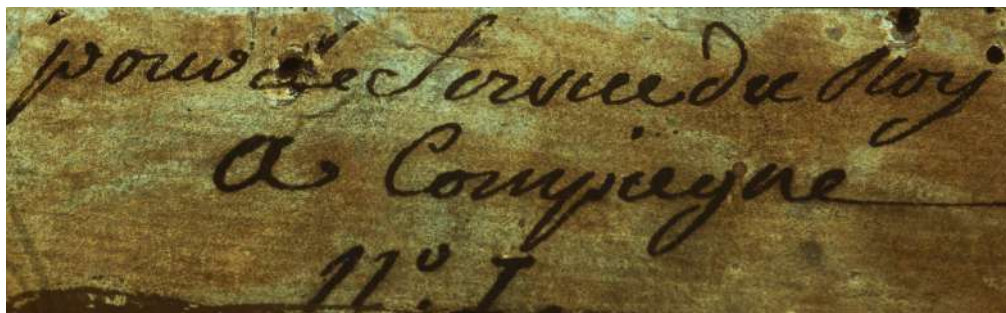 pour le Service du Roy
a Compiegne
N.º I.